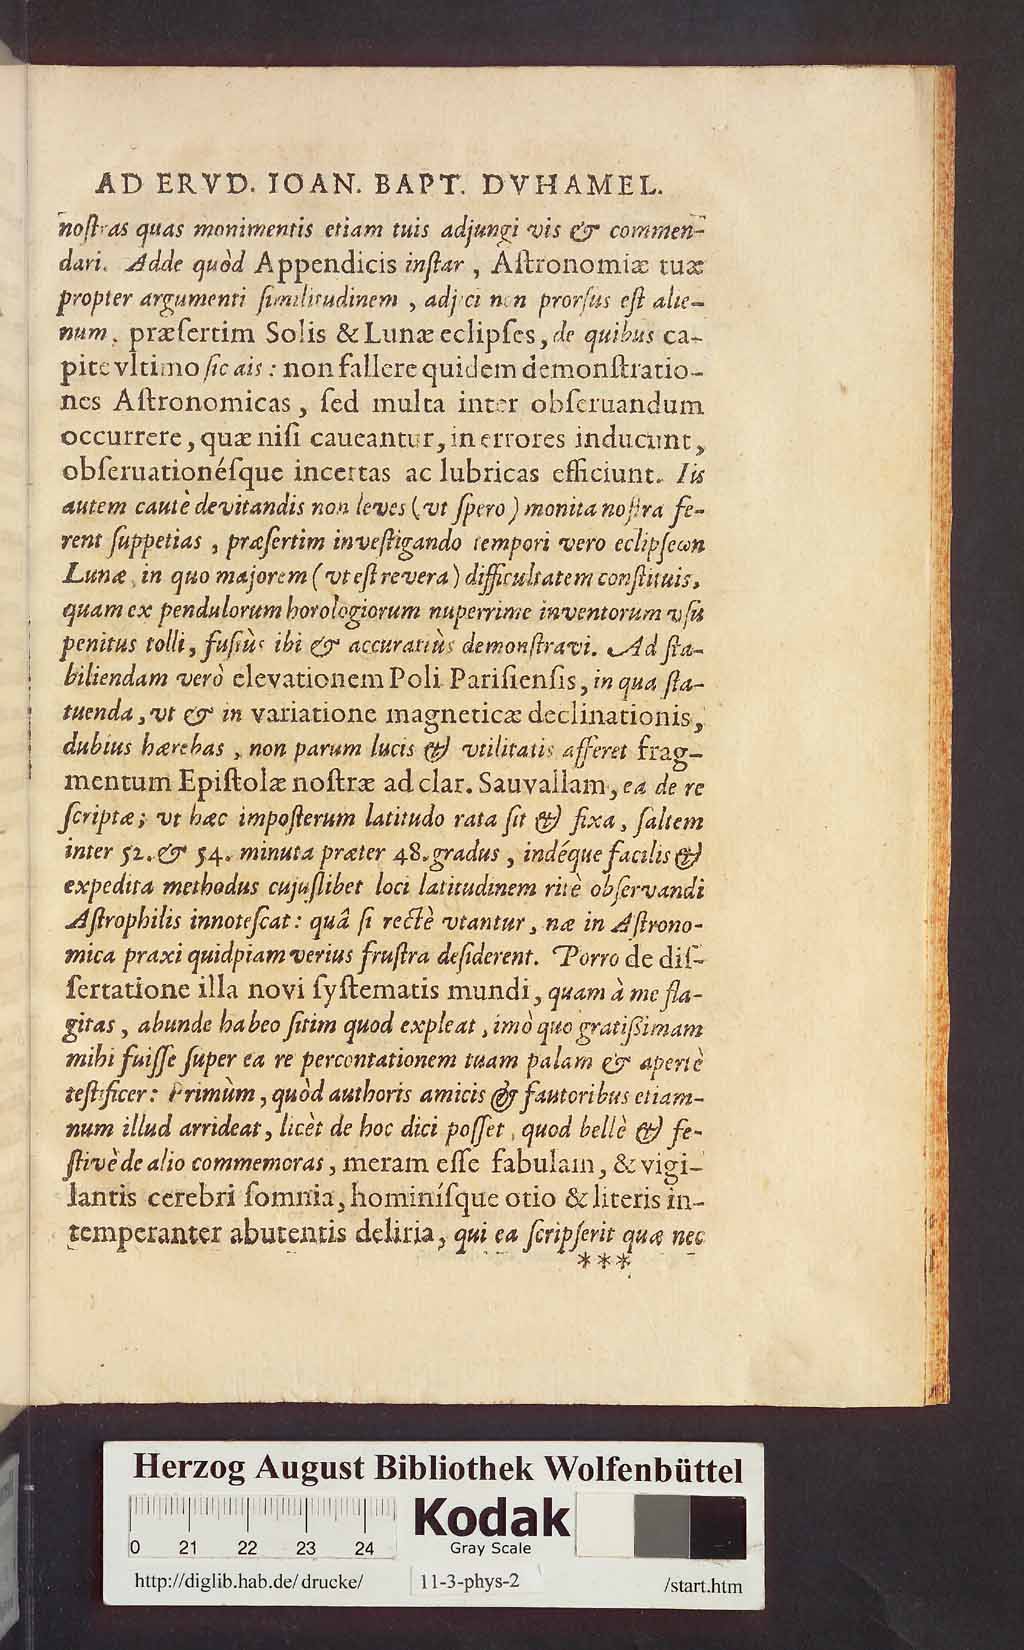 AD ERVD. IOAN. BAPT. DVHAMEL.
noſtras quas monimentis etiam tuis adjungi vis & commen-
dari. Adde quòd Appendicis inſtar, Aſtronomiæ tuæ
propter argumenti ſimilitudinem, adjici non prorſus eſt alie-
num, præſertim Solis & Lunæ eclipſes, de quibus ca-
pite vltimo ſic ais: non fallere quidem demonſtratio-
nes Aſtronomicas, ſed multa inter obſeruandum
occurrere, quæ niſi caueantur, in errores inducunt,
obſeruationéſque incertas ac lubricas efficiunt. Iis
autem cautè devitandis non leves (vt ſpero) monita noſtra fe-
rent ſuppetias, præſertim inveſtigando tempori vero eclipſeωn
Lunæ, in quo majorem (vt eſt revera) difficultatem conſtituis,
quam ex pendulorum horologiorum nuperrime inventorum vſu
penitus tolli, fuſiùs ibi & accuratiùs demonſtravi. Ad ſta-
biliendam verò elevationem Poli Pariſienſis, in qua ſta-
tuenda, vt & in variatione magneticæ declinationis,
dubius hærebas, non parum lucis & vtilitatis afferet frag-
mentum Epiſtolæ noſtræ ad clar. Sauvallam, ea de re
ſcriptæ; vt hæc impoſterum latitudo rata ſit & fixa, ſaltem
inter 52. & 54. minuta præter 48. gradus, indéque facilis &
expedita methodus cujuſlibet loci latitudinem ritè obſervandi
Aſtrophilis innoteſcat: quâ ſi rectè vtantur, næ in Aſtrono-
mica praxi quidpiam verius fruſtra deſiderent. Porro de diſ-
ſertatione illa novi ſyſtematis mundi, quam à me fla-
gitas, abunde habeo ſitim quod expleat, imò quo gratißimam
mihi fuiſſe ſuper ea re percontationem tuam palam & apertè
teſtificer: Primùm, quòd authoris amicis & fautoribus etiam-
num illud arrideat, licèt de hoc dici poſſet, quod bellè & fe-
ſtivè de alio commemoras, meram eſſe fabulam, & vigi-
lantis cerebri ſomnia, hominíſque otio & literis in-
temperanter abutentis deliria, qui ea ſcripſerit quæ nec
***
Herzog August Bibliothek Wolfenbüttel
0 21 22 23 24
Kodak
Gray Scale
http://diglib.hab.de/drucke/ 11-3-phys-2 /start.htm